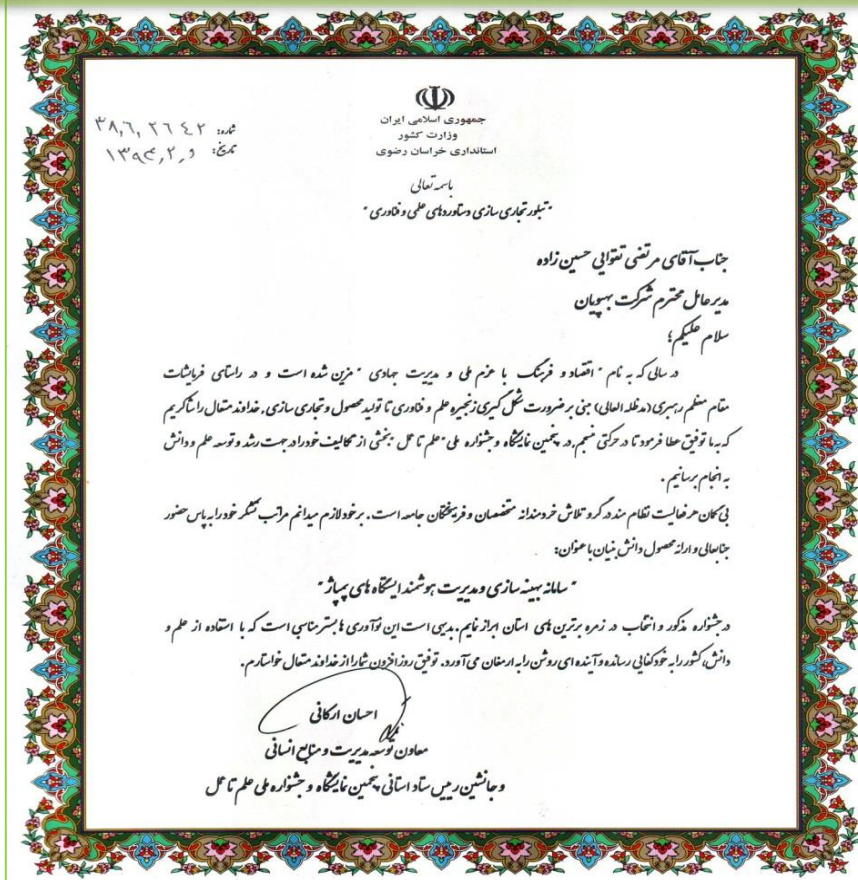 جمهوری اسلامی ایران
وزارت کشور
استانداری خراسان رضوی
شماره: ۳۸,۶,۲۶۴۲
تاریخ: ۱۳۹۳,۲,۶
باسمه تعالی
" تبلور تجاری سازی دستاوردهای علمی و فناوری "
جناب آقای مرتضی تقوایی حسین زاده
مدیر عامل محترم شرکت بهپویان
سلام علیکم؛
در سالی که به نام " اقتصاد و فرهنگ با عزم ملی و مدیریت جهادی " مزین شده است و در راستای فرمایشات
مقام معظم رهبری (مدظله العالی) مبنی بر ضرورت شکل گیری زنجیره علم و فناوری تا تولید محصول و تجاری سازی، خداوند متعال را شاکریم
که به ما توفیق عطا فرمود تا در حرکتی منسجم، در پنجمین نمایشگاه و جشنواره ملی " علم تا عمل " بخشی از تکالیف خود را در جهت رشد و توسعه علم و دانش
به انجام برسانیم .
بی گمان هر فعالیت نظام مند در گرو تلاش خردمندانه متخصصان و فرهیختگان جامعه است. بر خود لازم میدانم مراتب تشکر خود را به پاس حضور
جنابعالی و ارائه محصول دانش بنیان با عنوان:
" سامانه بهینه سازی و مدیریت هوشمند ایستگاه های پمپاژ "
در جشنواره مذکور و انتخاب در زمره برترین های استان ابراز نمایم. بدیهی است این نوآوری ها بستر مناسبی است که با استفاده از علم و
دانش، کشور را به خودکفایی رسانده و آینده ای روشن را به ارمغان می آورد. توفیق روزافزون شما را از خداوند متعال خواستارم.
احسان ارکانی
معاون توسعه مدیریت و منابع انسانی
و جانشین رییس ستاد استانی پنجمین نمایشگاه و جشنواره ملی علم تا عمل